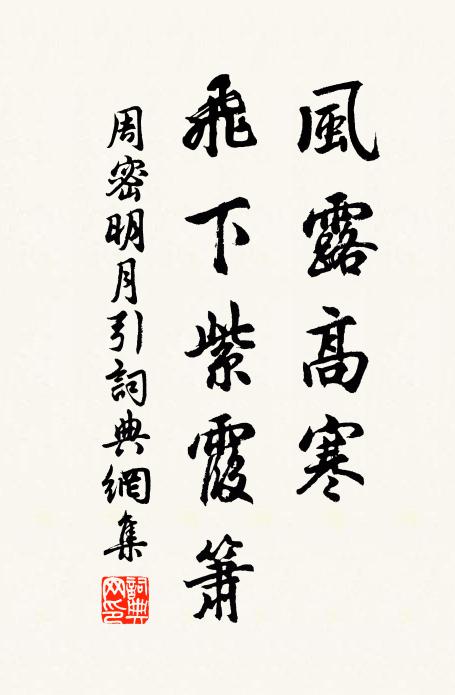 風露高寒
飛下紫霞簫
周密明月引詞典網集
詞典
网印